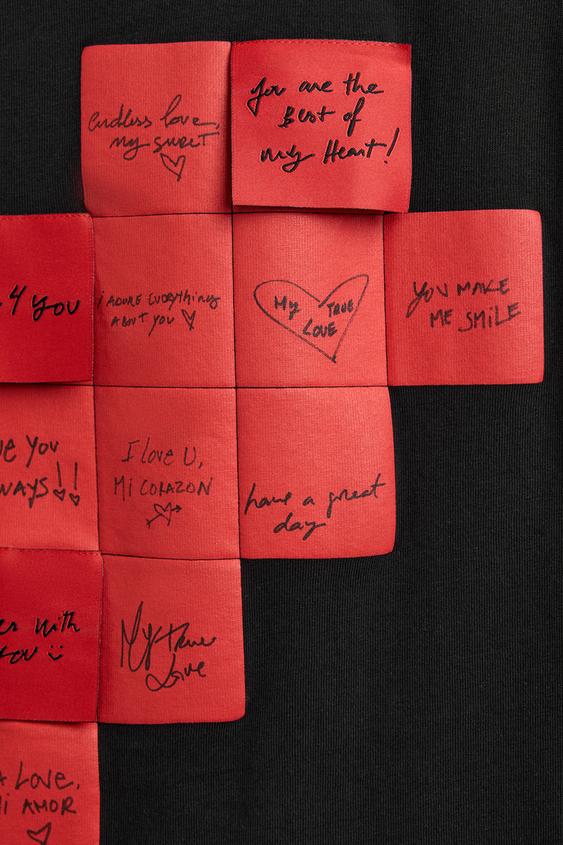 endless love,
my sweet
You are the
Best of
my Heart!
4 you
i ADORE EVERYTHING
ABOUT YOU
My TRUE
LOVE
YOU MAKE
ME SMILE
you
I love U,
Mi CORAZON
have a great
day
with
My true
Love
LOVE,
AMOR